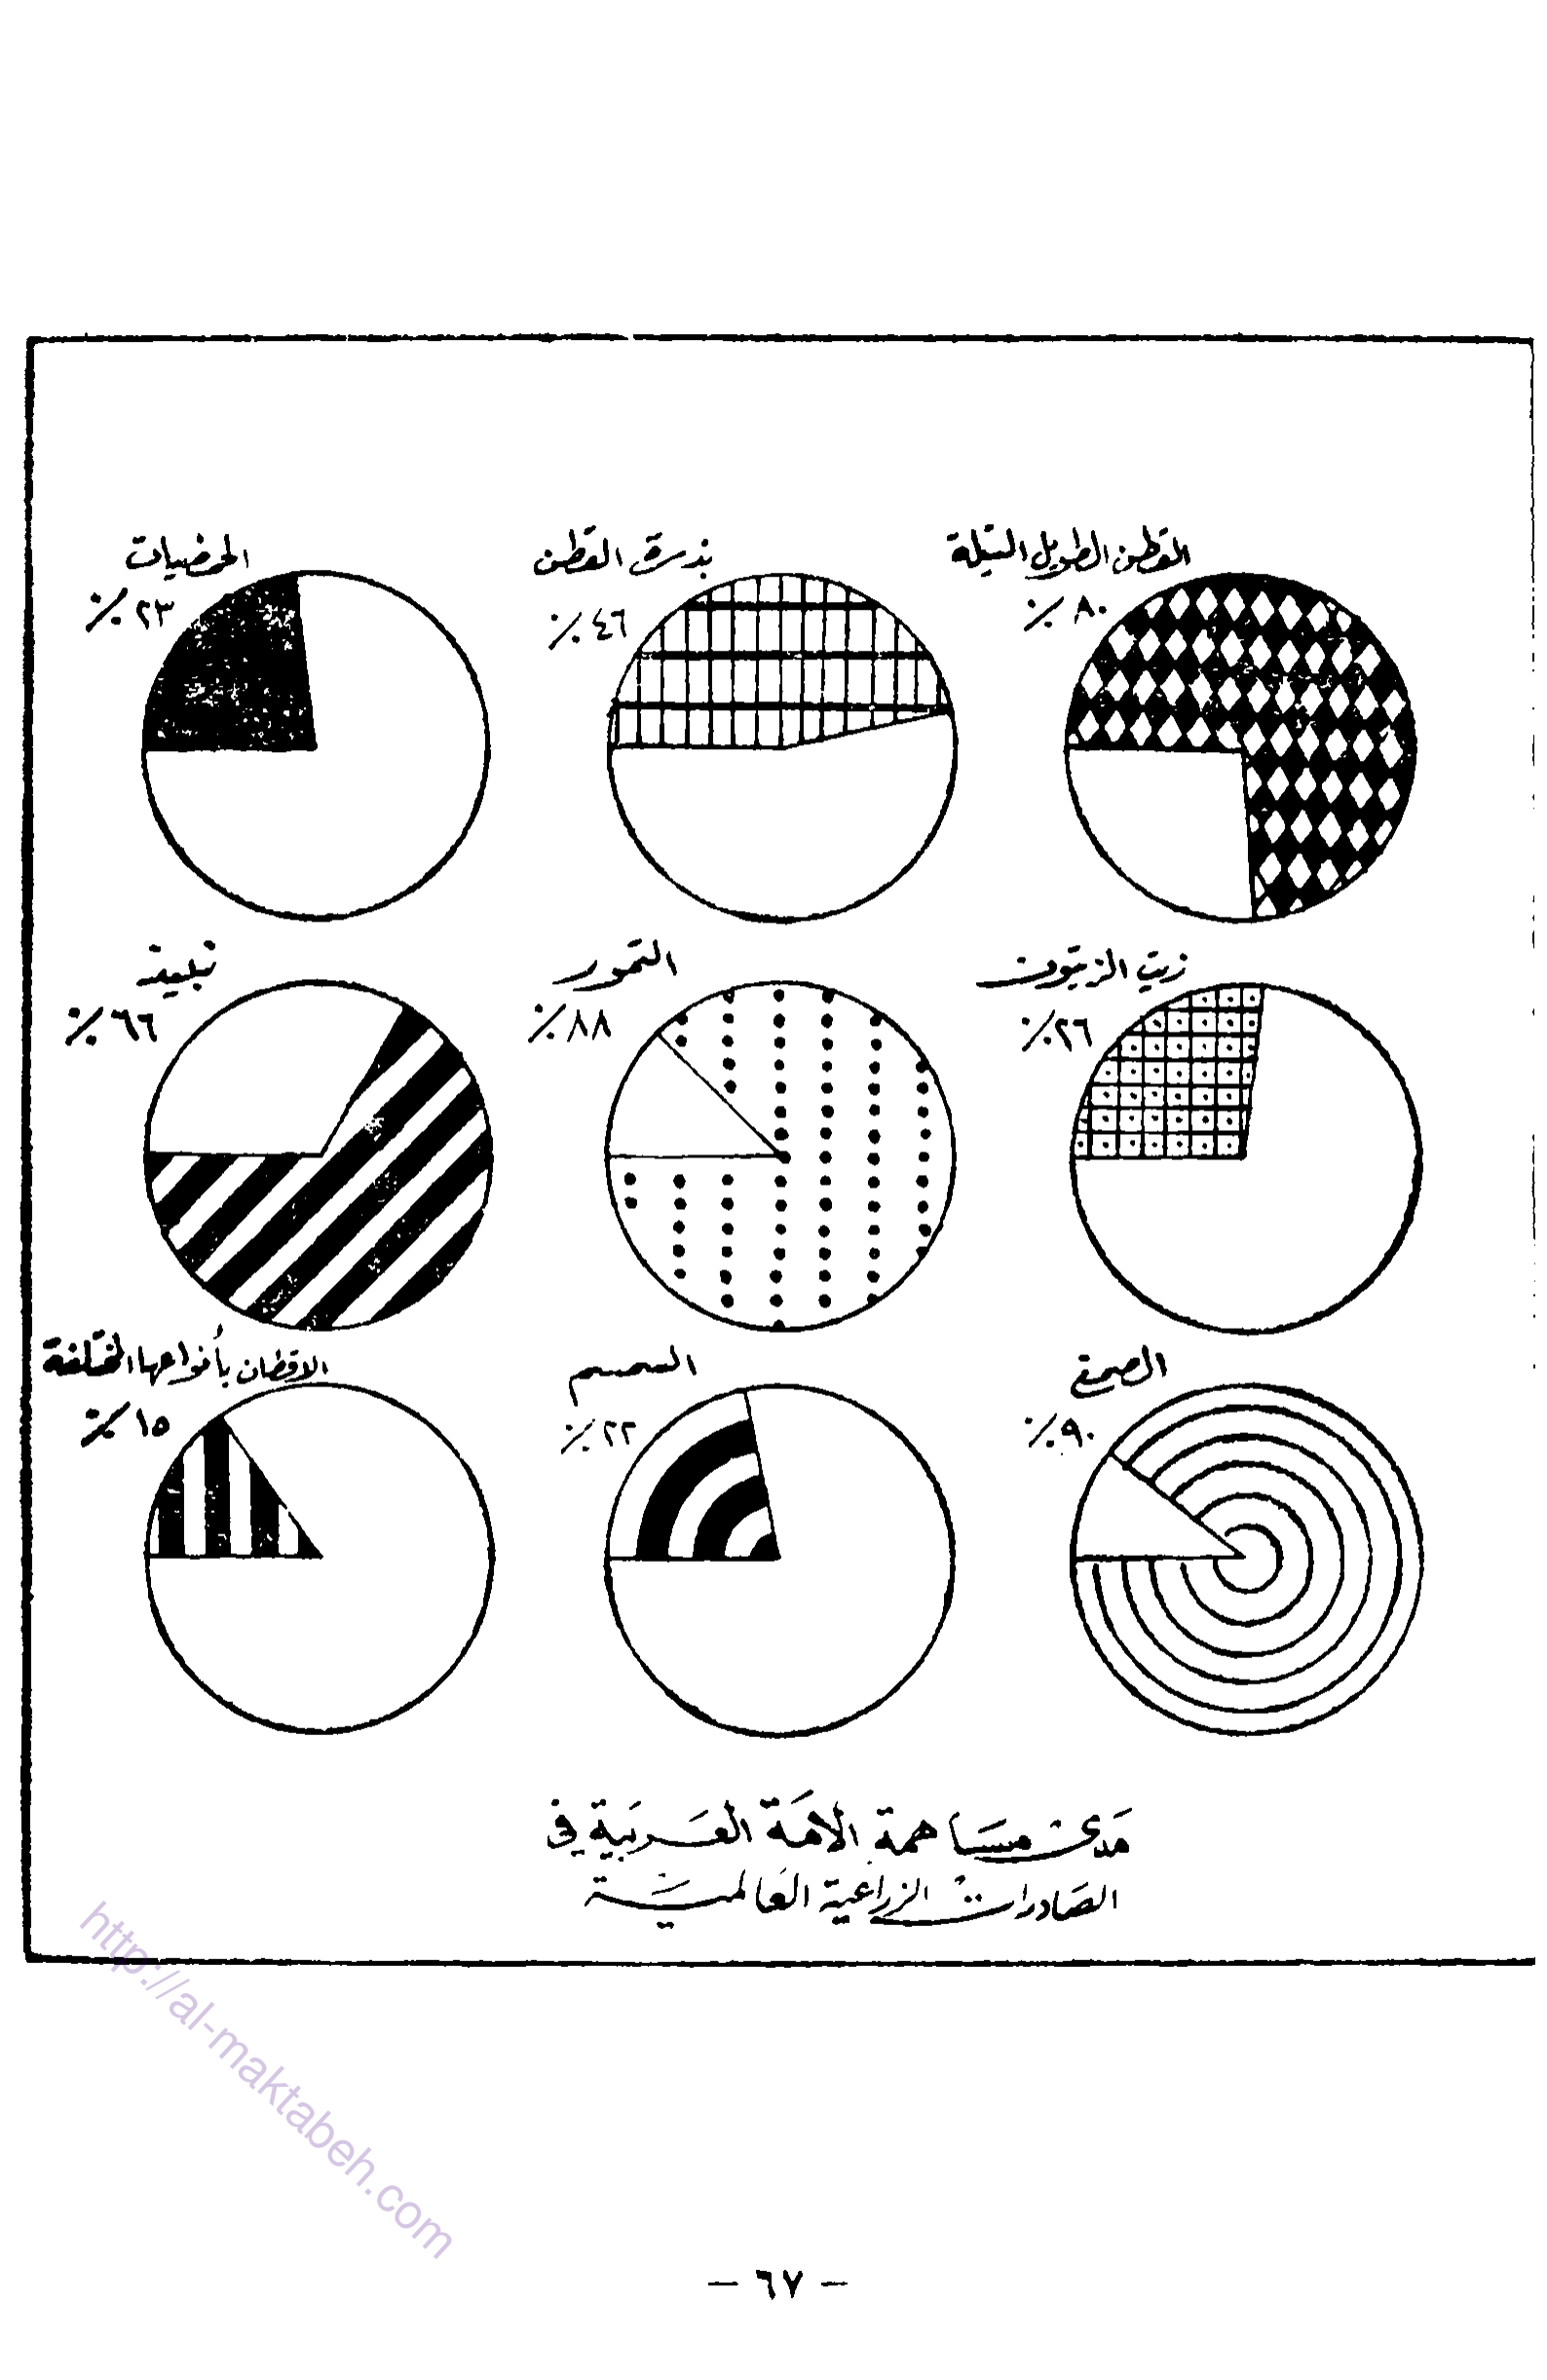 القطن الطويل التيلة
٨٠ ٪
بذرة القطن
٤٦ ٪
الحمضيات
٢٣ ٪
زيت الزيتون
٢٦ ٪
التمور
٨٨ ٪
٦٦ ٪
الصمغ
٩٠ ٪
السمسم
٢٢ ٪
الاقطان بأنواعها المختلفة
١٥ ٪
مَدى مسَاهمة الامَة العَربَية في
الصَادرات الزراعية العَالميَة
http://al-maktabeh.com
— ٦٧ —